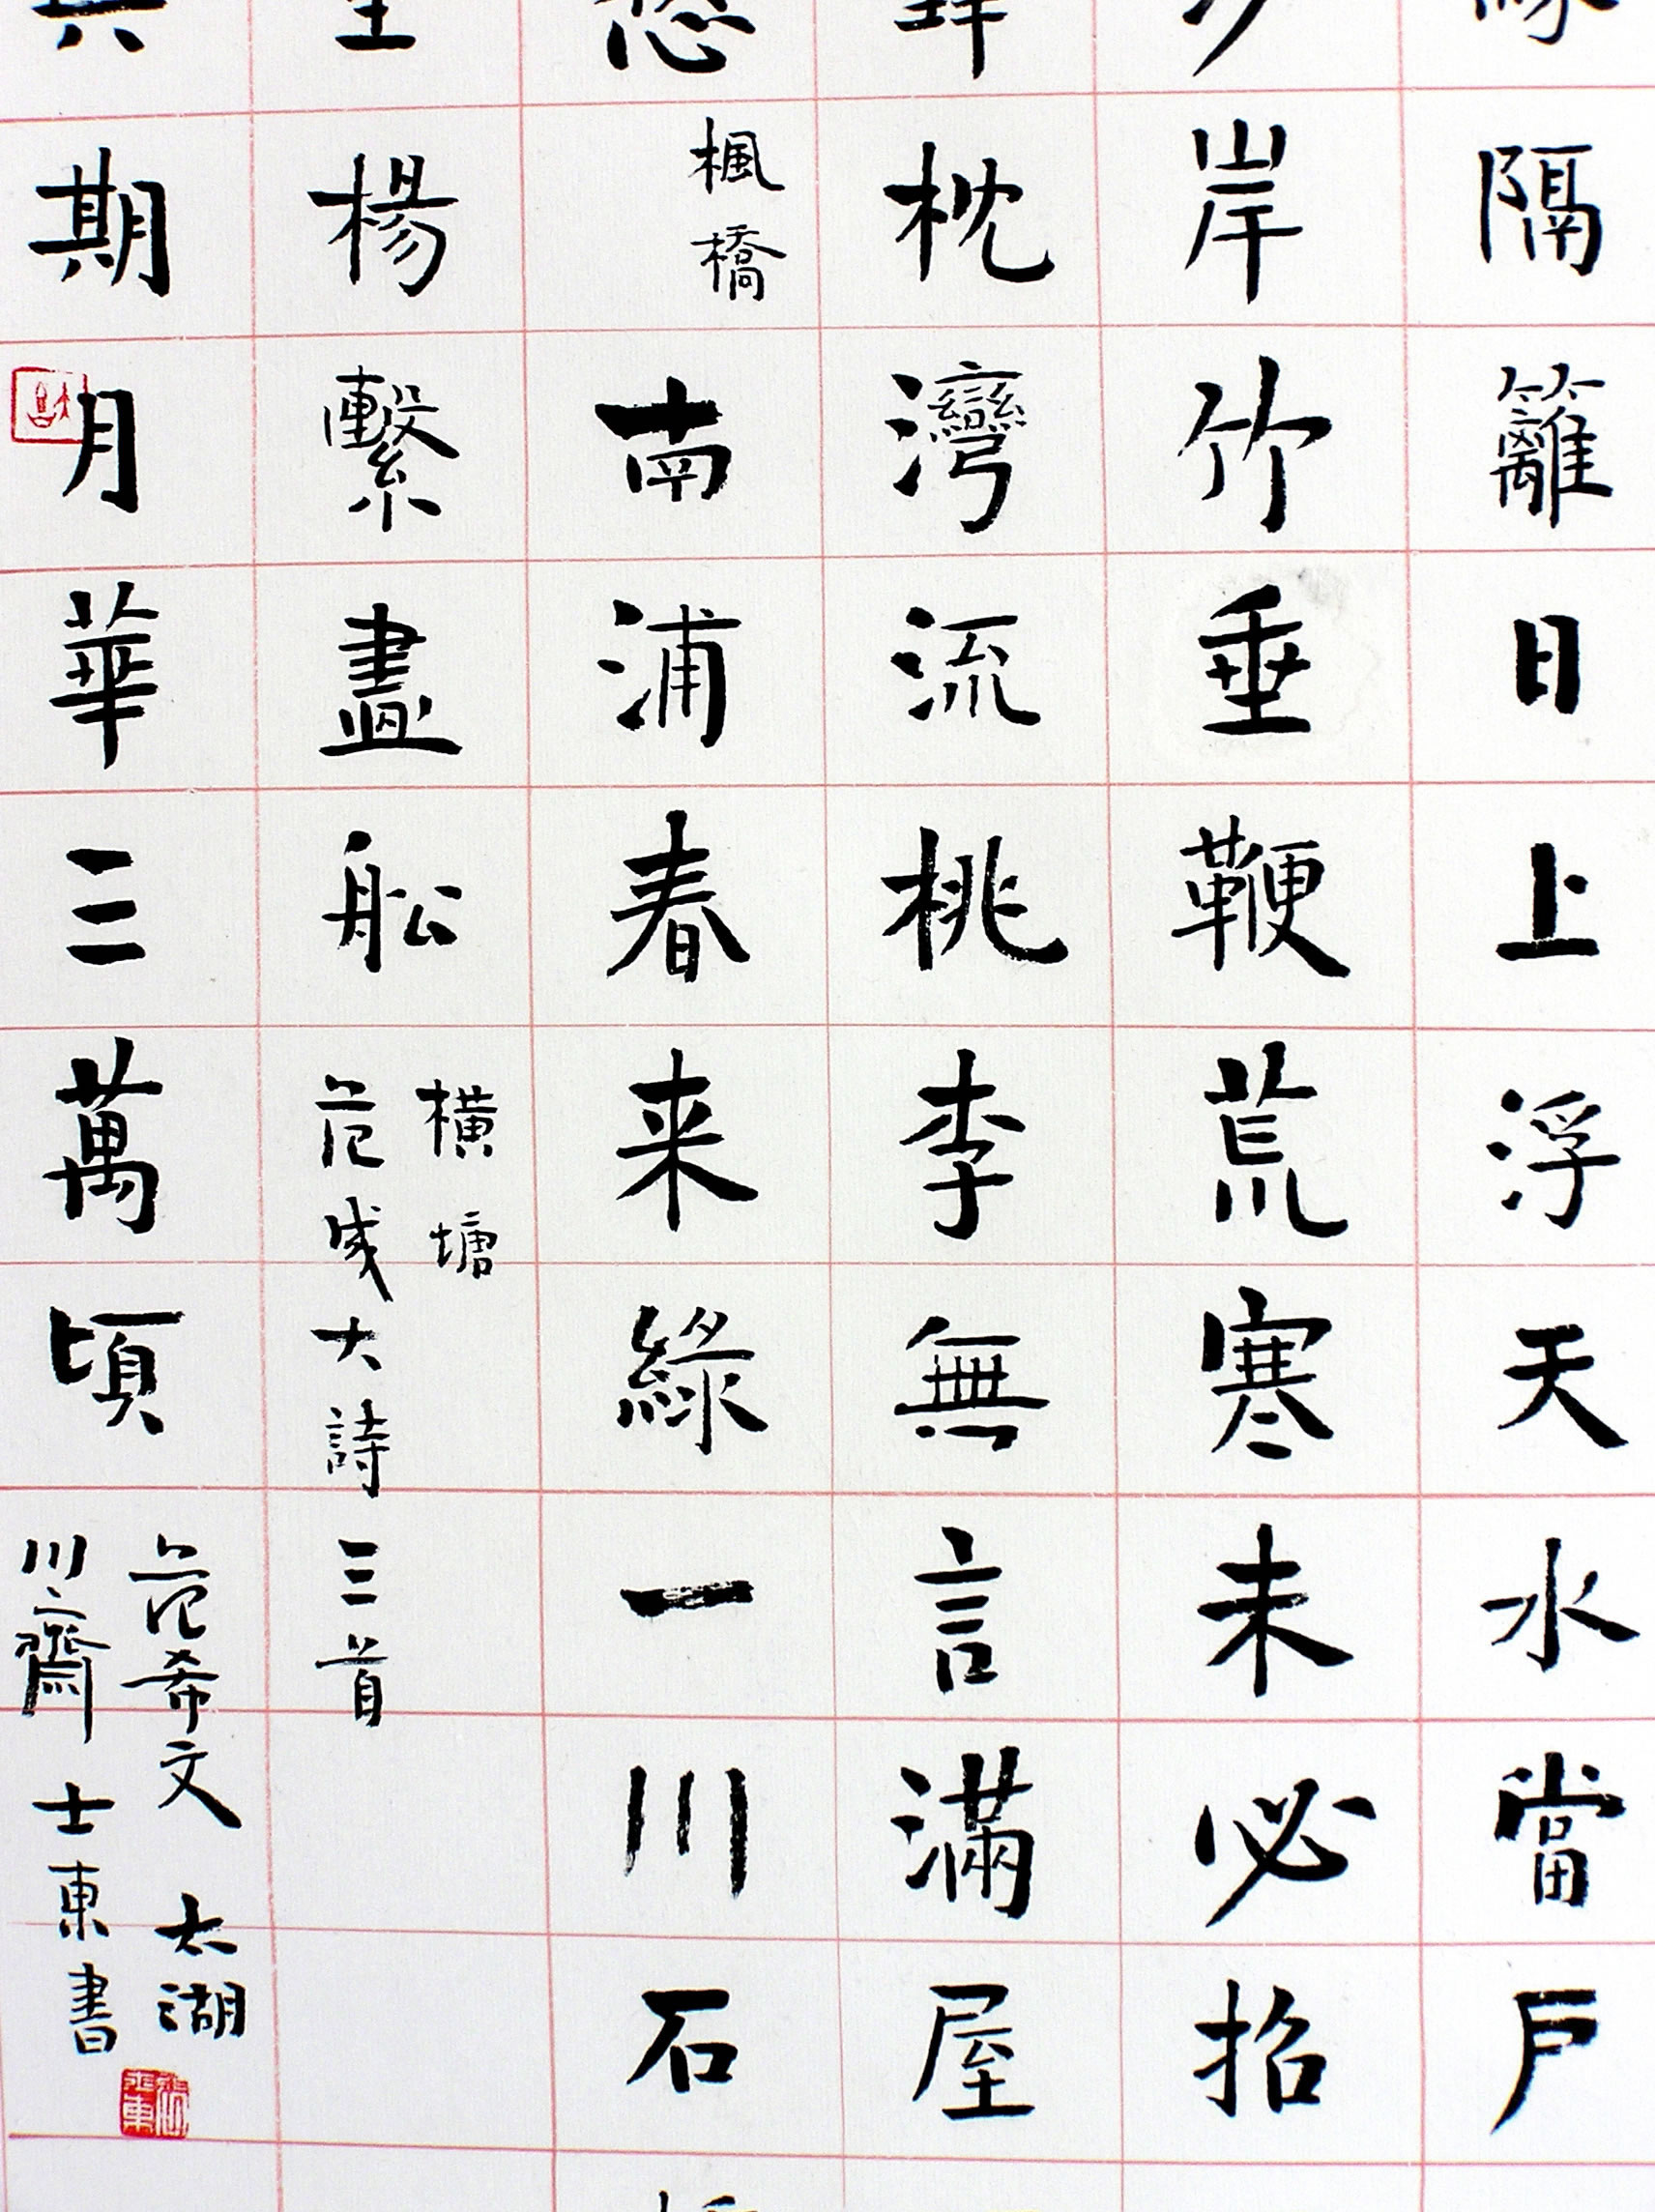 隔籬日上浮天水當戶
岸竹垂鞭荒寒未必招
枕灣流桃李無言滿屋
楓橋
南浦春来綠一川石
楊繫盡舩
橫塘
范成大詩三首
期月華三萬頃
范希文 太湖
川齋 士東書